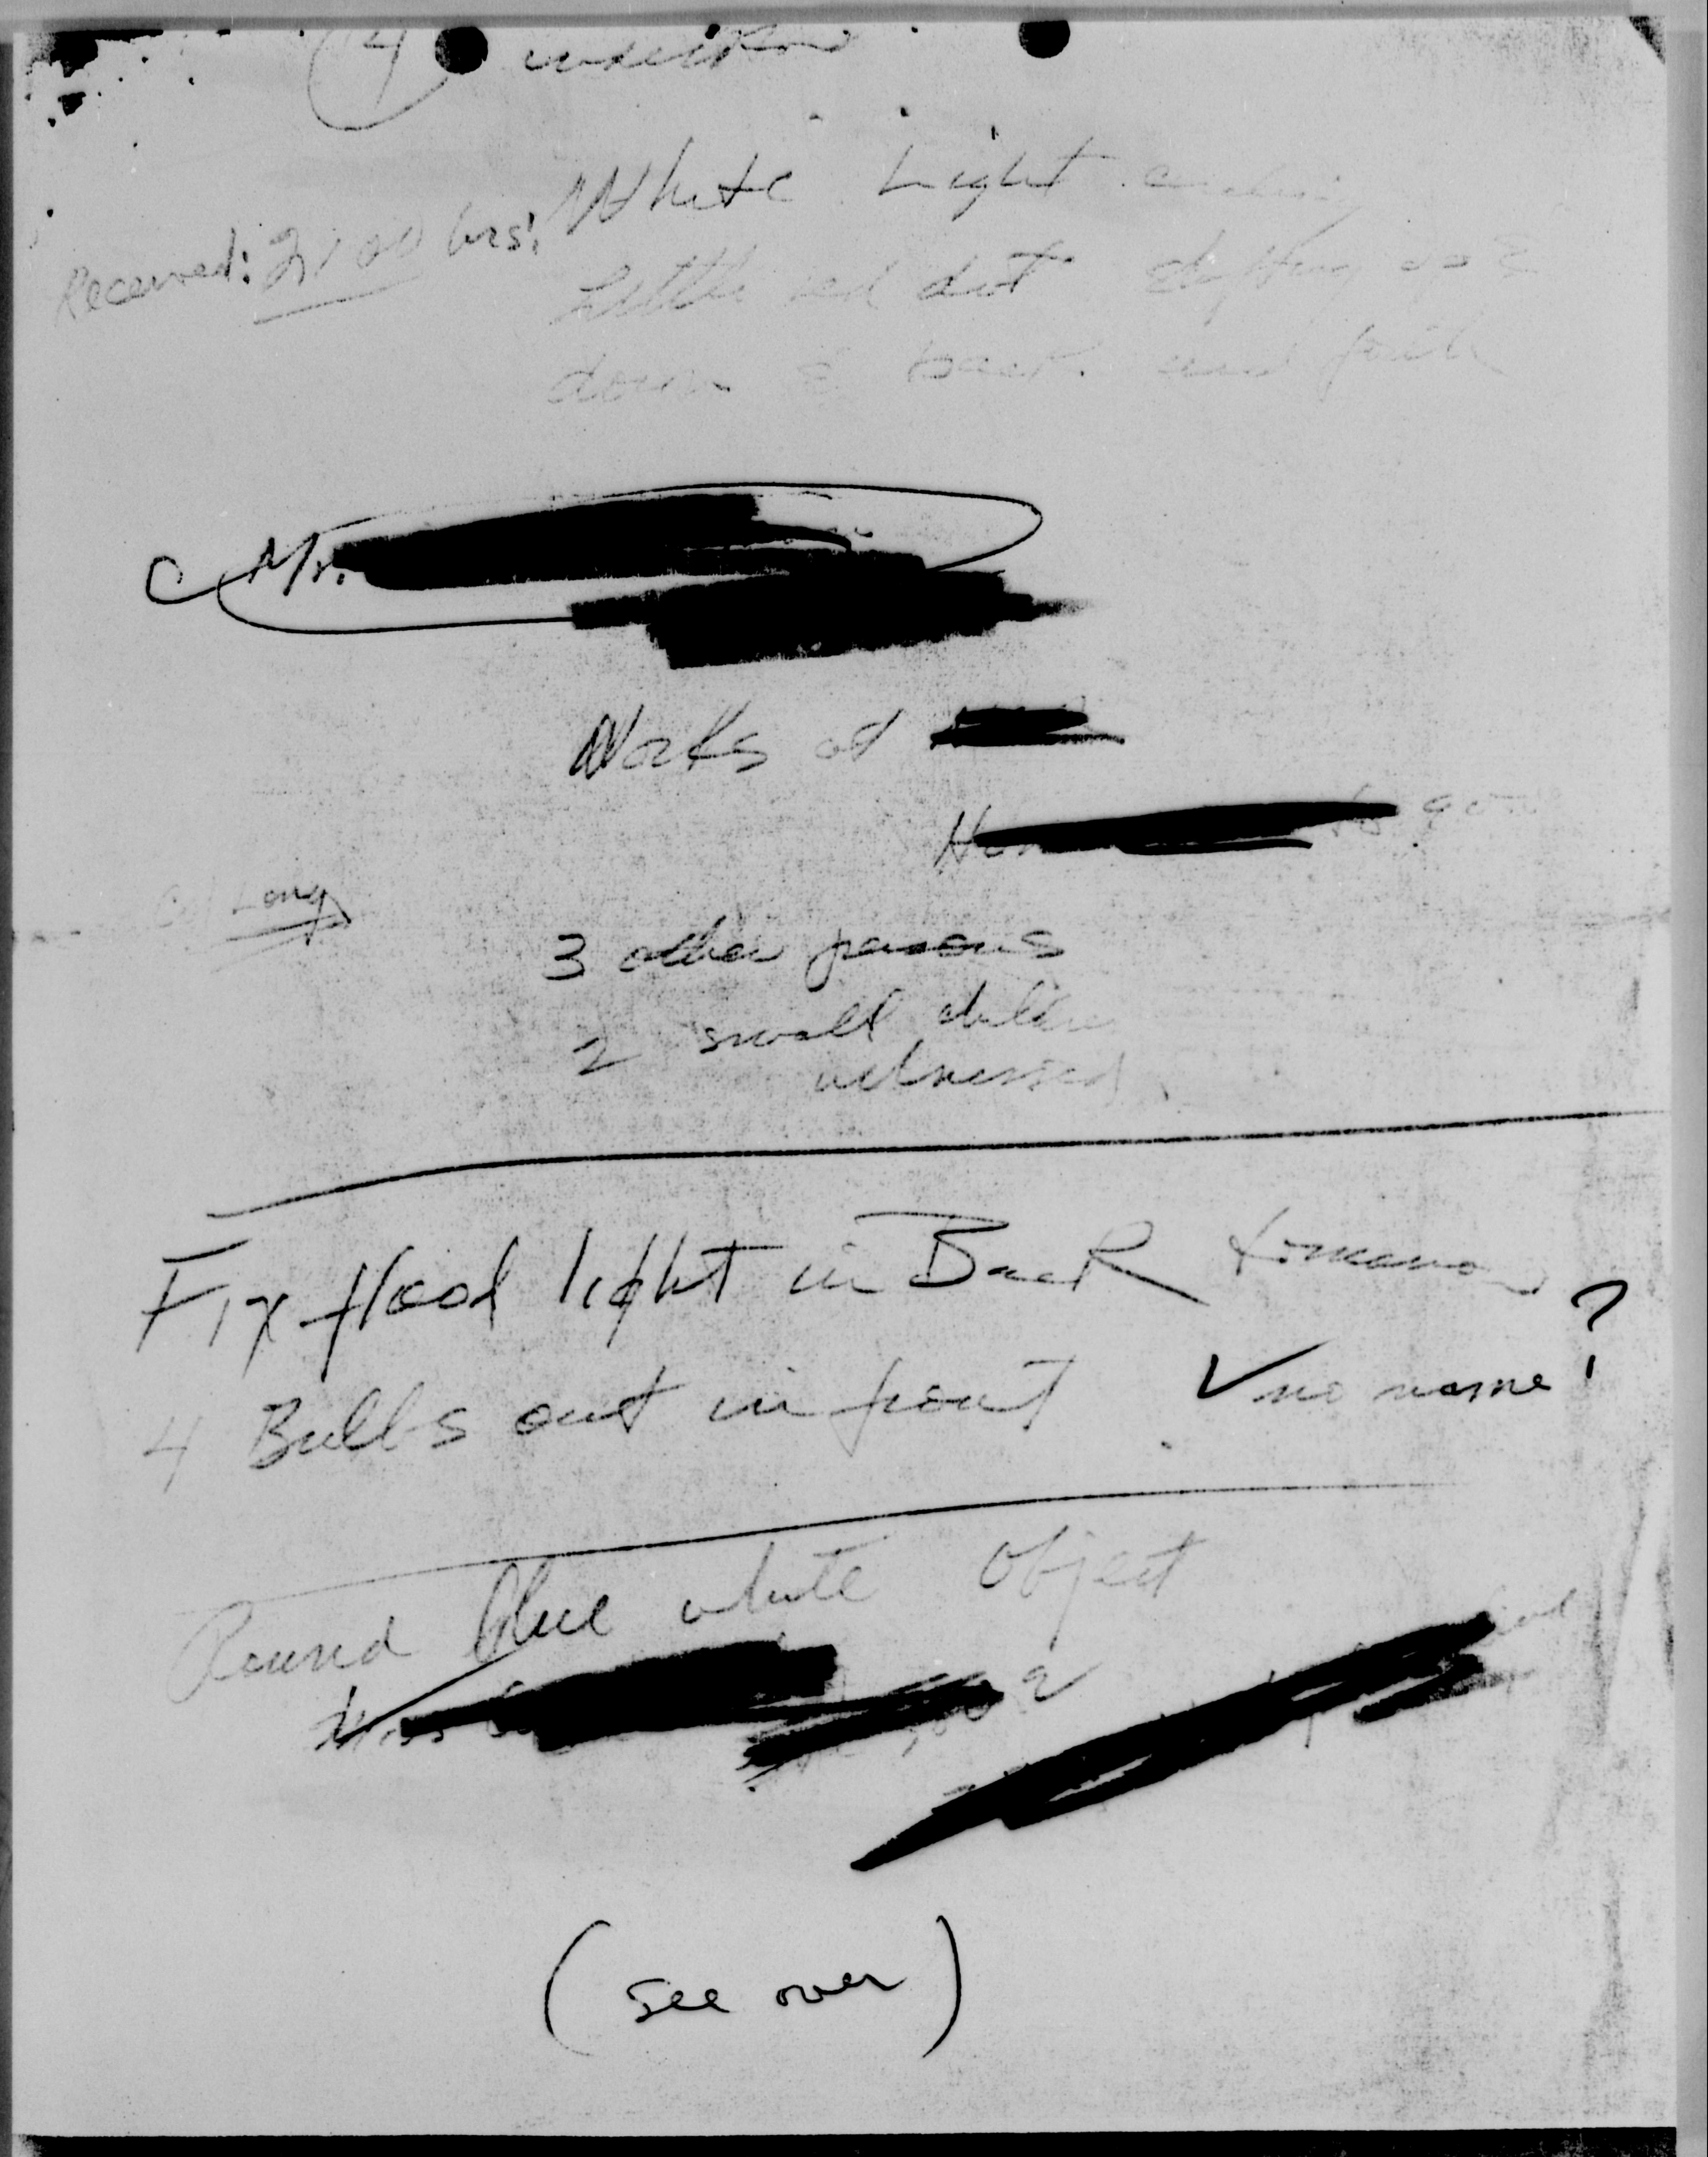 4
Received: 2100 hrs: White Light
Little red dot
down & back and forth
Mr.
Works at
Long
3 other persons
2 small children
witnessed
Fix flood light in Back tomorrow
4 Bulbs out in front ✓ no name?
Round blue white object
Miss
2
(see over)